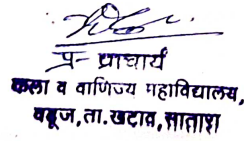 प्र- प्राचार्य
कला व वाणिज्य महाविद्यालय,
वडूज,ता.खटाव,सातारा